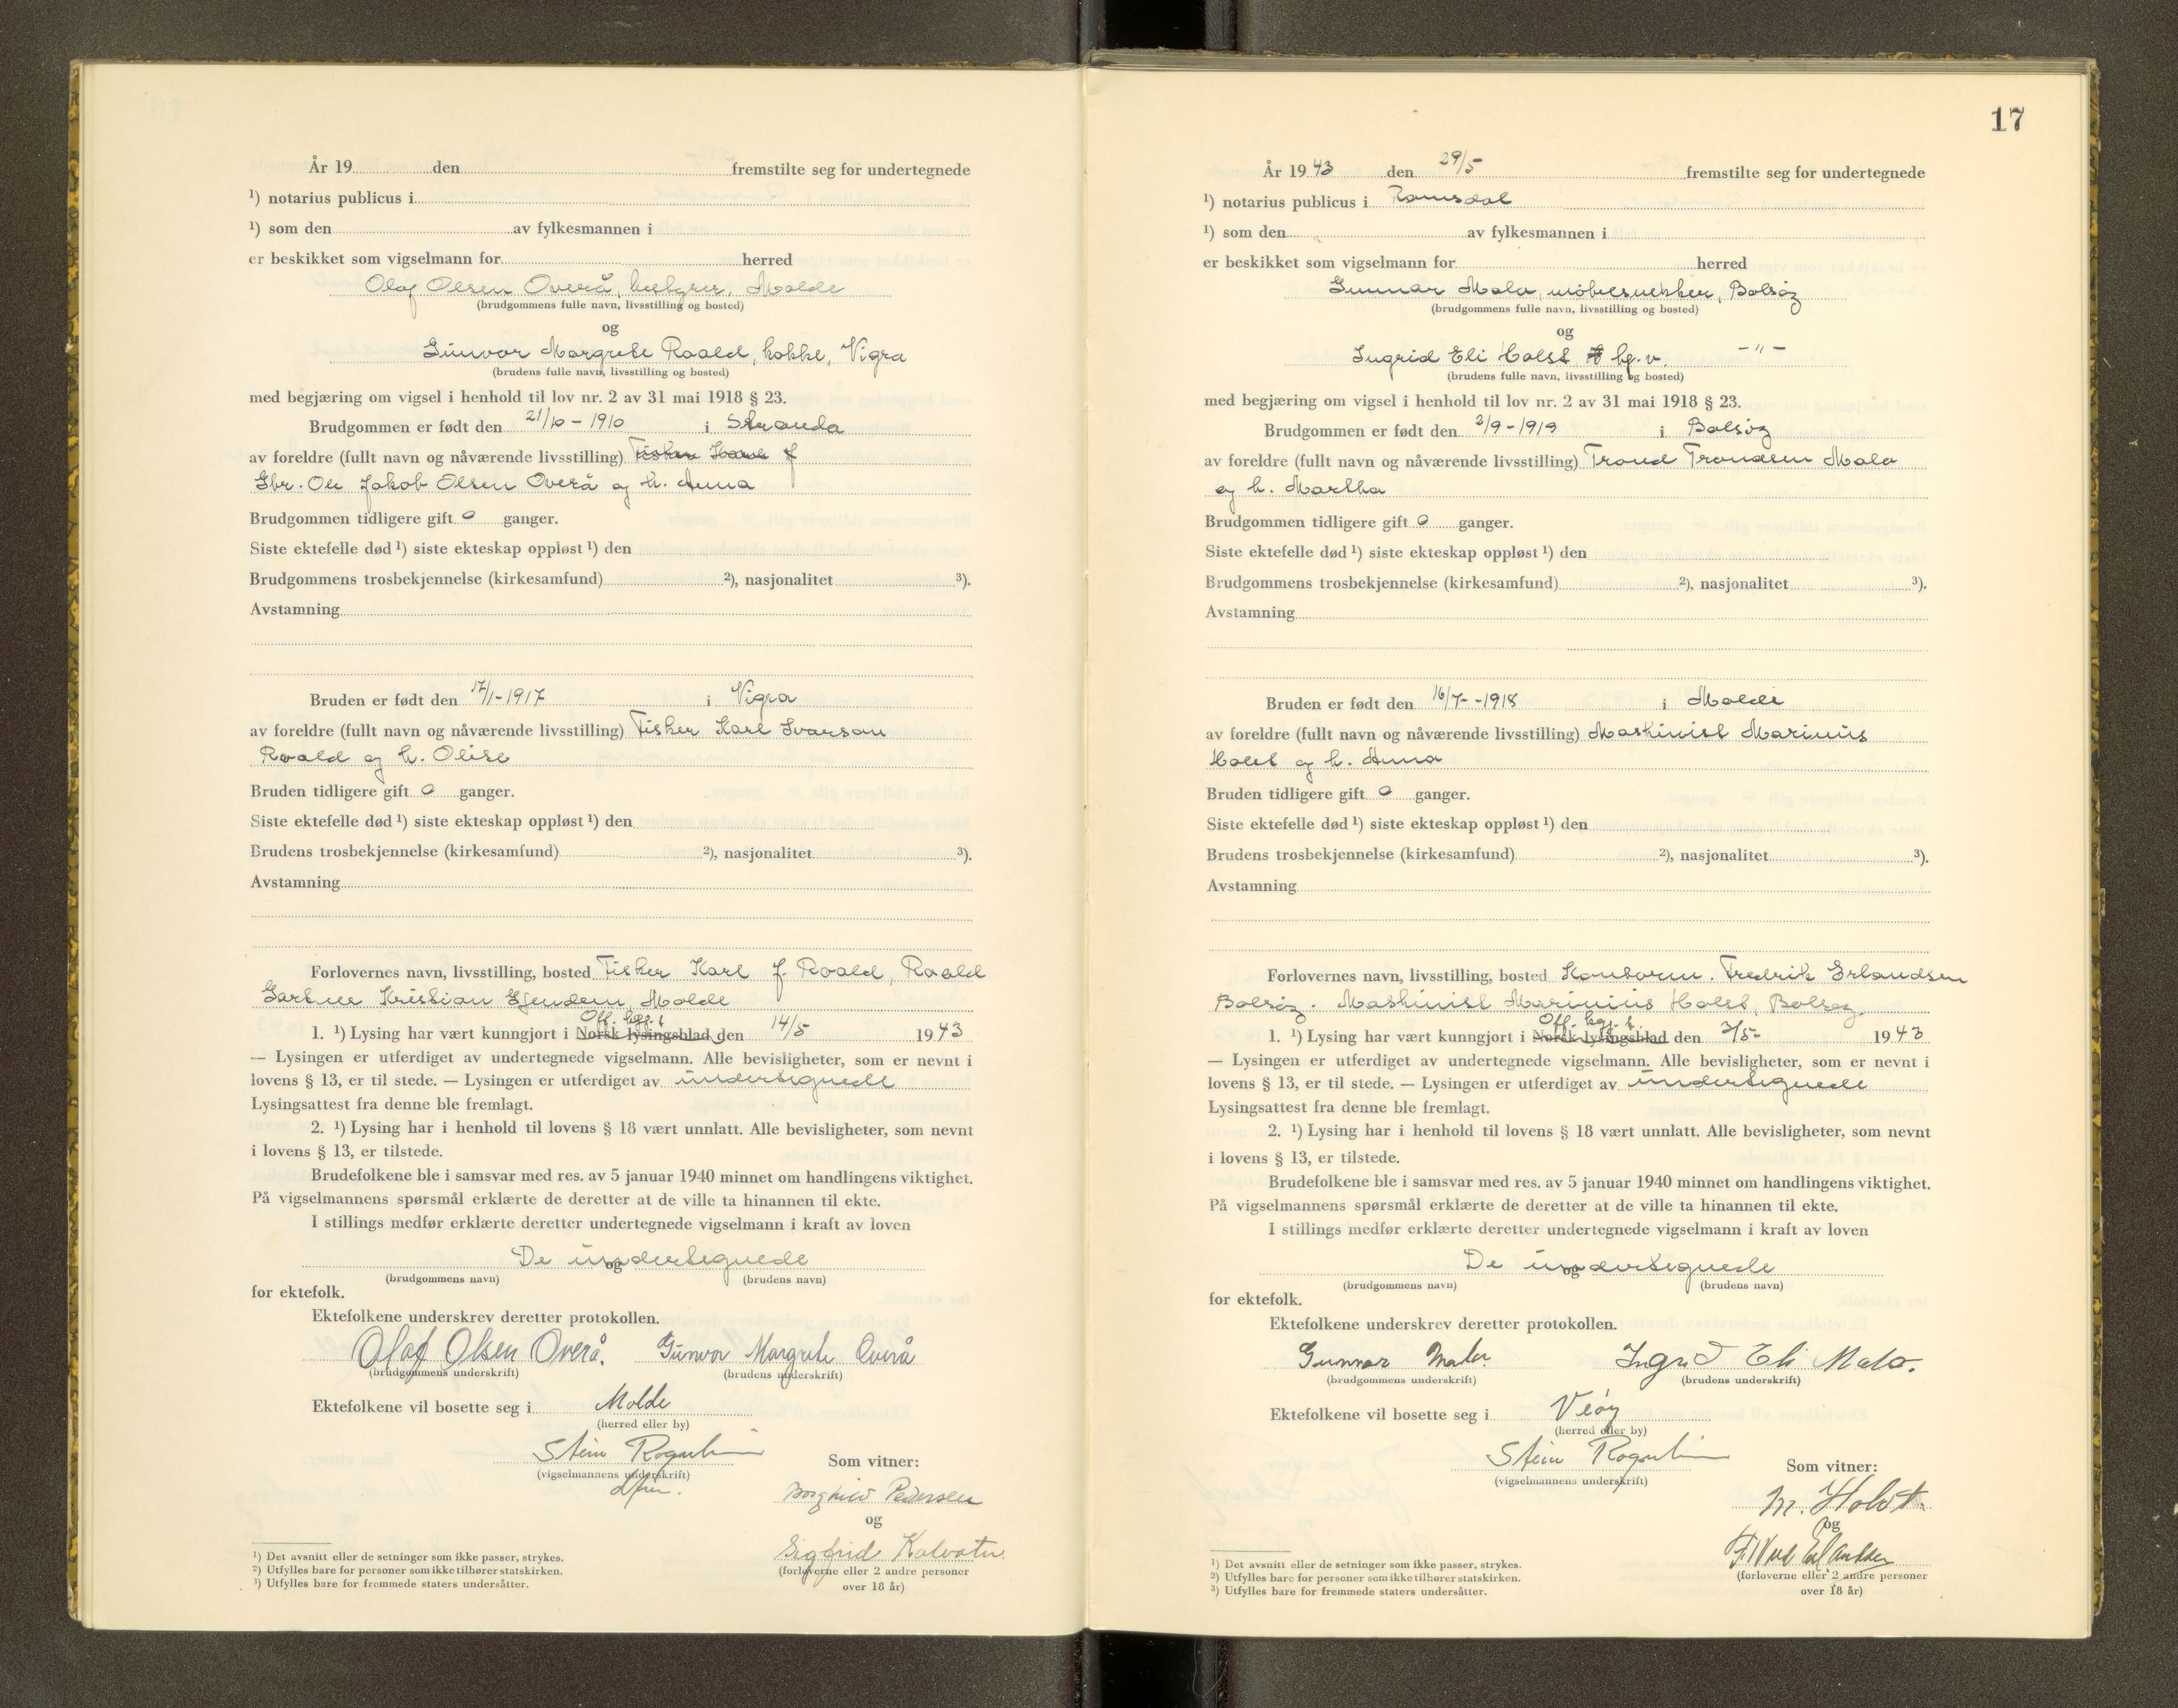 År 19 den fremstilte seg for undertegnede
¹) notarius publicus i
¹) som den av fylkesmannen i
er beskikket som vigselmann for herred
Olaf Olsen Overå, Molde
(brudgommens fulle navn, livsstilling og bosted)
og
Gunvor Margrete Roald, kokke, Vigra
(brudens fulle navn, livsstilling og bosted)
med begjæring om vigsel i henhold til lov nr. 2 av 31 mai 1918 § 23.
Brudgommen er født den 21/10 - 1910 i Stranda
av foreldre (fullt navn og nåværende livsstilling) Fisker
Gbr. Ole Jakob Olsen Overå og h. Anna
Brudgommen tidligere gift 0 ganger.
Siste ektefelle død ¹) siste ekteskap oppløst ¹) den
Brudgommens trosbekjennelse (kirkesamfund) ²), nasjonalitet ³).
Avstamning
Bruden er født den 17/1 - 1917 i Vigra
av foreldre (fullt navn og nåværende livsstilling) Fisker Karl Ivarson
Roald og h. Olise
Bruden tidligere gift 0 ganger.
Siste ektefelle død ¹) siste ekteskap oppløst ¹) den
Brudens trosbekjennelse (kirkesamfund) ²), nasjonalitet ³).
Avstamning
Forlovernes navn, livsstilling, bosted Fisker Karl J. Roald, Roald
Gartner Kristian Gjendem, Molde
Off. kgj. t
1. ¹) Lysing har vært kunngjort i Norsk lysingsblad den 14/5 1943
— Lysingen er utferdiget av undertegnede vigselmann. Alle bevisligheter, som er nevnt i
lovens § 13, er til stede. — Lysingen er utferdiget av undertegnede
Lysingsattest fra denne ble fremlagt.
2. ¹) Lysing har i henhold til lovens § 18 vært unnlatt. Alle bevisligheter, som nevnt
i lovens § 13, er tilstede.
Brudefolkene ble i samsvar med res. av 5 januar 1940 minnet om handlingens viktighet.
På vigselmannens spørsmål erklærte de deretter at de ville ta hinannen til ekte.
I stillings medfør erklærte deretter undertegnede vigselmann i kraft av loven
De undertegnede
og
(brudgommens navn) (brudens navn)
for ektefolk.
Ektefolkene underskrev deretter protokollen.
Olaf Olsen Overå. Gunvor Margrete Overå
(brudgommens underskrift) (brudens underskrift)
Ektefolkene vil bosette seg i Molde
(herred eller by)
Stein Rognlien
(vigselmannens underskrift)
Som vitner:
Borghild Pedersen
og
Sigfrid Kalvatn.
(forloverne eller 2 andre personer
over 18 år)
¹) Det avsnitt eller de setninger som ikke passer, strykes.
²) Utfylles bare for personer som ikke tilhører statskirken.
³) Utfylles bare for fremmede staters undersåtter.
17
År 1943 den 29/5 fremstilte seg for undertegnede
¹) notarius publicus i Romsdal
¹) som den av fylkesmannen i
er beskikket som vigselmann for herred
Gunnar Malo, møbelsnekker, Bolsøy
(brudgommens fulle navn, livsstilling og bosted)
og
Ingrid Eli Holst h. v. -"-
(brudens fulle navn, livsstilling og bosted)
med begjæring om vigsel i henhold til lov nr. 2 av 31 mai 1918 § 23.
Brudgommen er født den 2/9 - 1919 i Bolsøy
av foreldre (fullt navn og nåværende livsstilling) Trond Trondsen Malo
og h. Martha
Brudgommen tidligere gift 0 ganger.
Siste ektefelle død ¹) siste ekteskap oppløst ¹) den
Brudgommens trosbekjennelse (kirkesamfund) ²), nasjonalitet ³).
Avstamning
Bruden er født den 16/7 - 1918 i Molde
av foreldre (fullt navn og nåværende livsstilling) Maskinist Marinius
Holst og h. Anna
Bruden tidligere gift 0 ganger.
Siste ektefelle død ¹) siste ekteskap oppløst ¹) den
Brudens trosbekjennelse (kirkesamfund) ²), nasjonalitet ³).
Avstamning
Forlovernes navn, livsstilling, bosted Kontorm. Fredrik Erlandsen
Bolsøy. Maskinist Marinius Holst, Bolsøy.
Off. kgj. t.
1. ¹) Lysing har vært kunngjort i Norsk lysingsblad den 3/5- 1943
— Lysingen er utferdiget av undertegnede vigselmann. Alle bevisligheter, som er nevnt i
lovens § 13, er til stede. — Lysingen er utferdiget av undertegnede
Lysingsattest fra denne ble fremlagt.
2. ¹) Lysing har i henhold til lovens § 18 vært unnlatt. Alle bevisligheter, som nevnt
i lovens § 13, er tilstede.
Brudefolkene ble i samsvar med res. av 5 januar 1940 minnet om handlingens viktighet.
På vigselmannens spørsmål erklærte de deretter at de ville ta hinannen til ekte.
I stillings medfør erklærte deretter undertegnede vigselmann i kraft av loven
De undertegnede
og
(brudgommens navn) (brudens navn)
for ektefolk.
Ektefolkene underskrev deretter protokollen.
Gunnar Malo. Ingrid Eli Malo.
(brudgommens underskrift) (brudens underskrift)
Ektefolkene vil bosette seg i Veøy
(herred eller by)
Stein Rognlien
(vigselmannens underskrift)
Som vitner:
M. Holst.
og
Erlandsen
(forloverne eller 2 andre personer
over 18 år)
¹) Det avsnitt eller de setninger som ikke passer, strykes.
²) Utfylles bare for personer som ikke tilhører statskirken.
³) Utfylles bare for fremmede staters undersåtter.